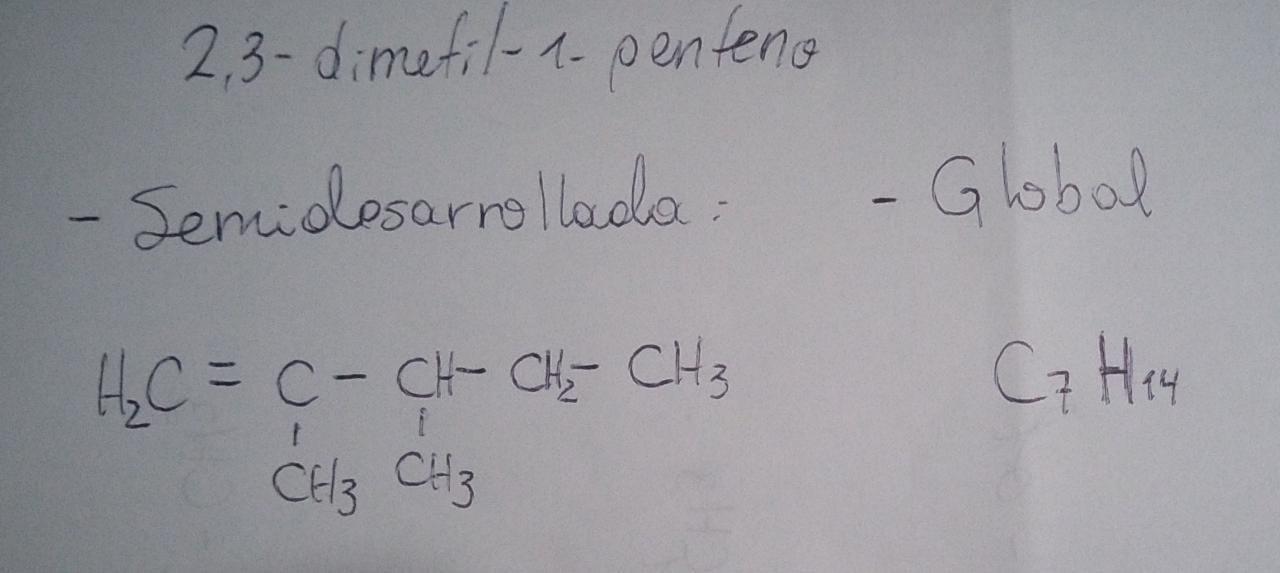 2,3-dimetil-1-penteno
- Semidesarrollada: - Global
H₂C = C - CH - CH₂ - CH₃ C₇H₁₄
CH₃ CH₃